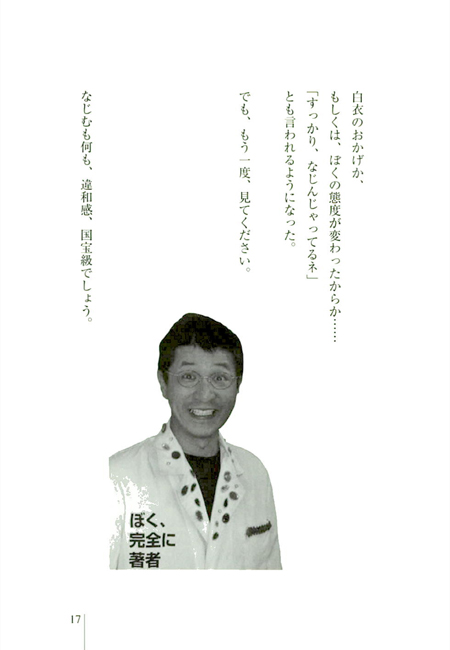 白衣のおかげか、
もしくは、ぼくの態度が変わったからか……
「すっかり、なじんじゃってるネ」
とも言われるようになった。
でも、もう一度、見てください。
なじむも何も、違和感、国宝級でしょう。
ぼく、
完全に
著者
17